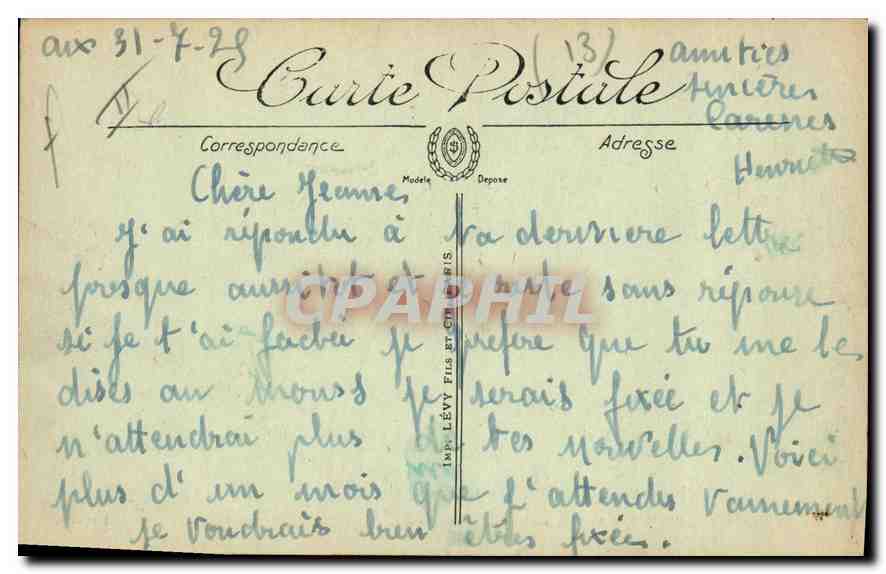 aix 31-7-25
(13) amitiés
sincères
Caresses
Henriette
Carte Postale
Correspondance
Adresse
Modèle Déposé
Chère Jeanne
J'ai répondu à ta derniere lettre
presque aussitot et reste sans réponse
si je t'ai fachée je prefere que tu me le
dises au moins je serais fixée et je
n'attendrai plus de tes nouvelles. Voici
plus d'un mois que j'attends vainement
je voudrais bien être fixée.
IMP. LÉVY FILS ET CIE PARIS
CPAPHIL